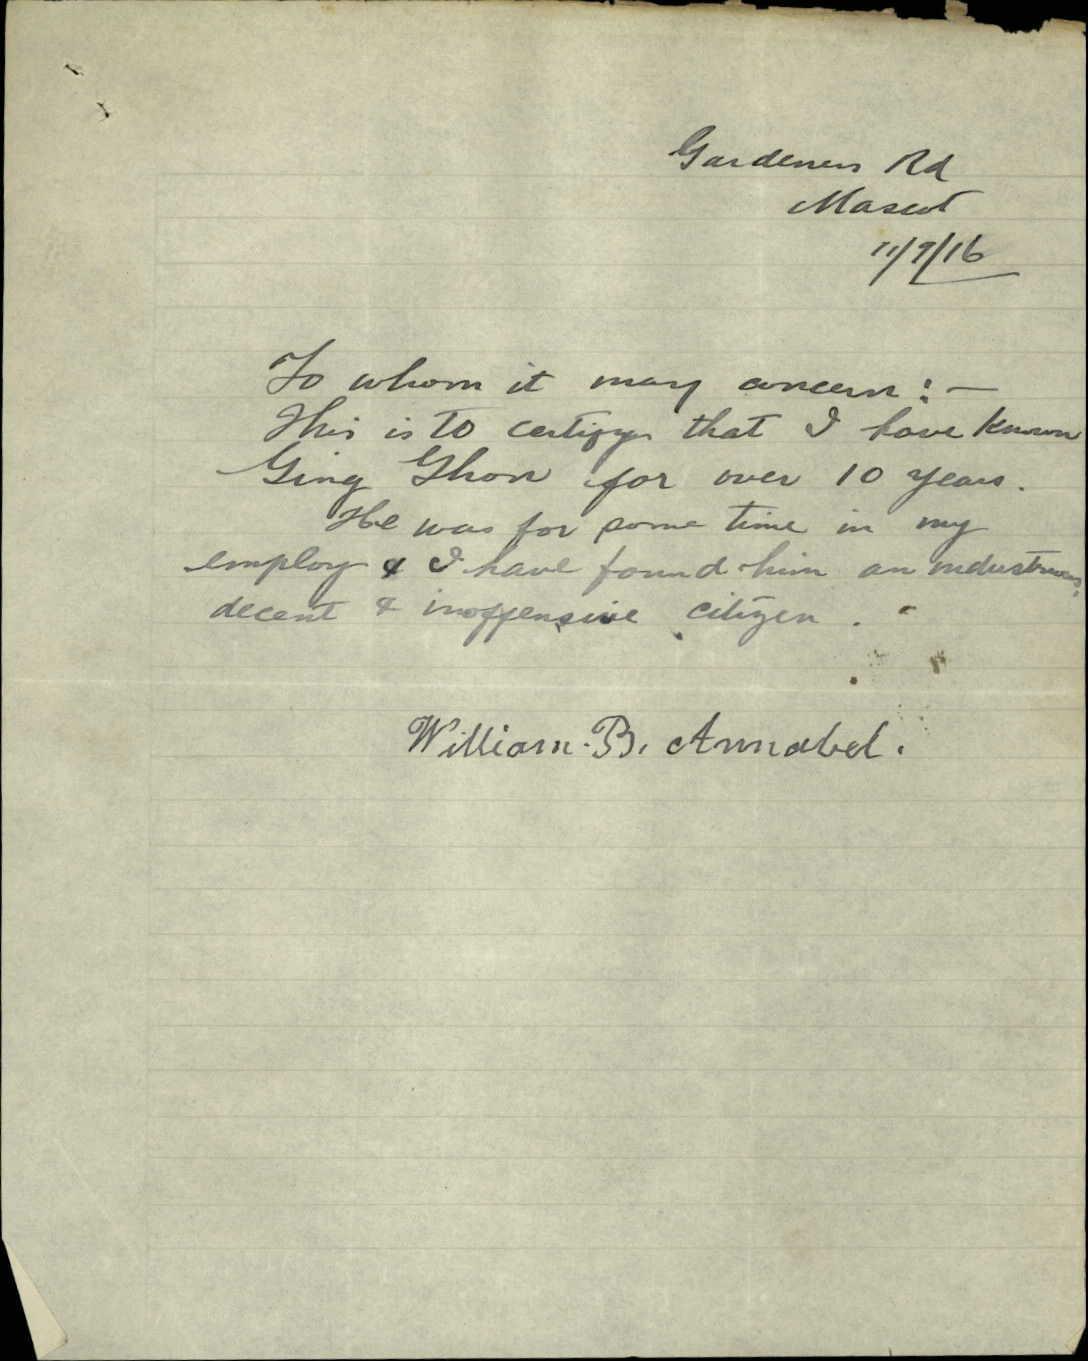 Gardeners Rd
Mascot
11/9/16
To whom it may concern : —
This is to certify that I have known
Ging Ghon for over 10 years.
He was for some time in my
employ & I have found him an industrious,
decent & inoffensive citizen .
William . B. Annabel .